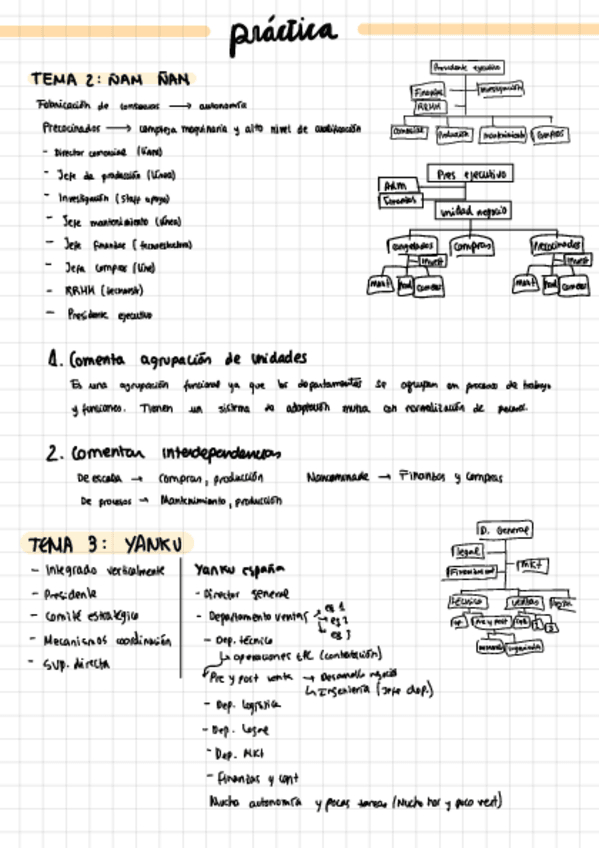 práctica
TEMA 2: ÑAM ÑAN
Fabricación de → autonomía
Precocinados → compleja maquinaria y alto nivel de cualificación
- Director comercial (línea)
- Jefe de producción (línea)
- Investigación (staff apoyo)
- Jefe mantenimiento (línea)
- Jefe finanzas (tecnoestructura)
- Jefa compras (line)
- RRHH
- Presidente ejecutivo
Presidente ejecutivo
Investigación
RRHH
Comercial Producción Mantenimiento Compras
Pres ejecutivo
Adm
Finanzas
unidad negocio
congelados compras Precocinados
invest invest
mant Prod comer mant Prod comer
1. Comenta agrupación de unidades
Es una agrupación funcional ya que los departamentos se agrupan en proceso de trabajo
y funciones. Tienen un sistema de adaptación mutua con normalización de
2. Comentar interdependencias
De escala → compras, producción → Finanzas y compras
De procesos → Mantenimiento, producción
TEMA 3: YANKU
- Integrado verticalmente
- Presidente
- Comité estratégico
- Mecanismos coordinación
- Sup. directa
Yanku españa
- Director general
- Departamento ventas → eg 1
→ eg 2
→ eg 3
- Dep. técnico
↳ operaciones
Pre y post venta → Desarrollo negocio
↳ Ingeniería (Jefe dep.)
- Dep. logística
- Dep. Legal
- Dep. MKt
- Finanzas y cont
Mucha autonomía y pocas tareas (Mucho hor y poco vert)
D. General
legal
MKt
Financiero
técnico ventas
Pre y post